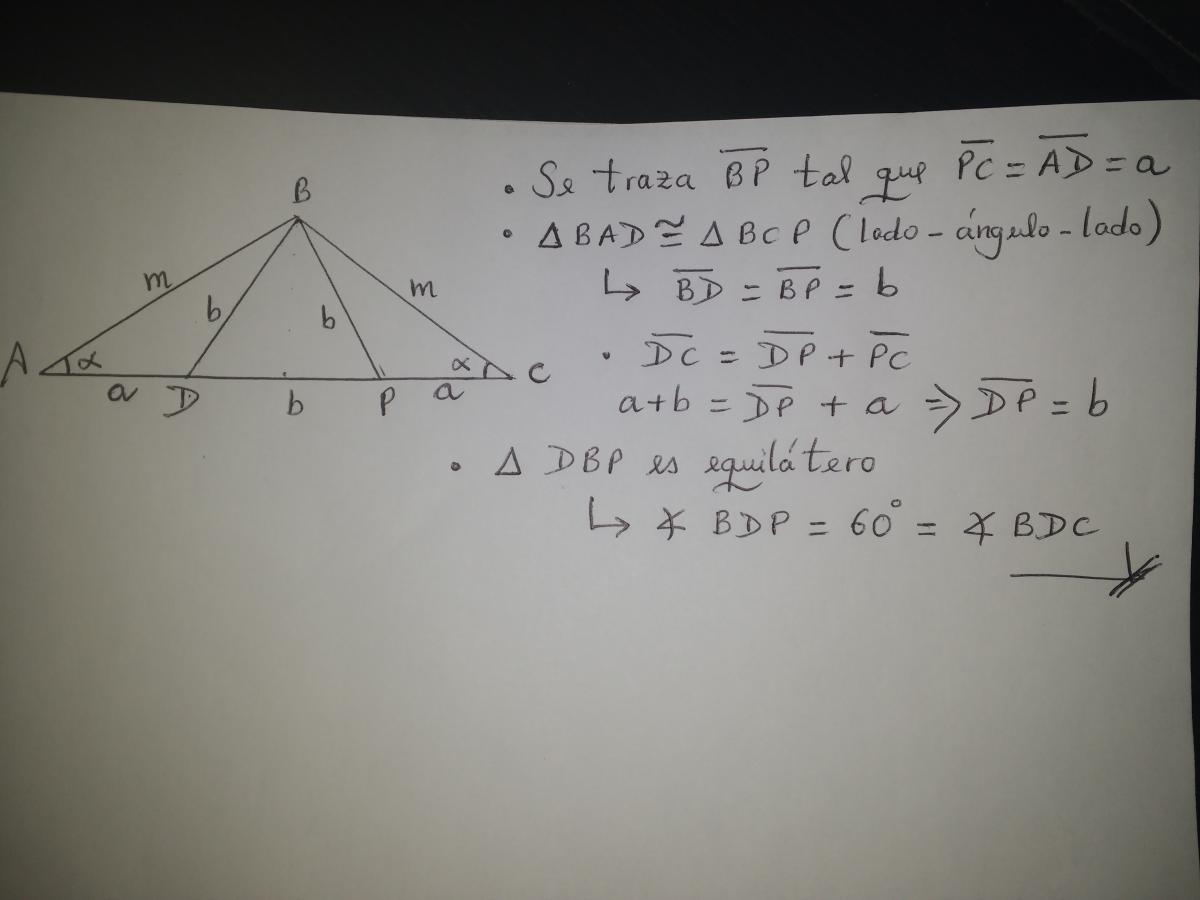 B
m
m
b
b
A
α
α
C
a
D
b
P
a
• Se traza \overline{BP} tal que \overline{PC} = \overline{AD} = a
• Δ BAD ≅ Δ BCP (lado - ángulo - lado)
↳ \overline{BD} = \overline{BP} = b
• \overline{DC} = \overline{DP} + \overline{PC}
a + b = \overline{DP} + a ⇒ \overline{DP} = b
• Δ DBP es equilátero
↳ ∡ BDP = 60° = ∡ BDC